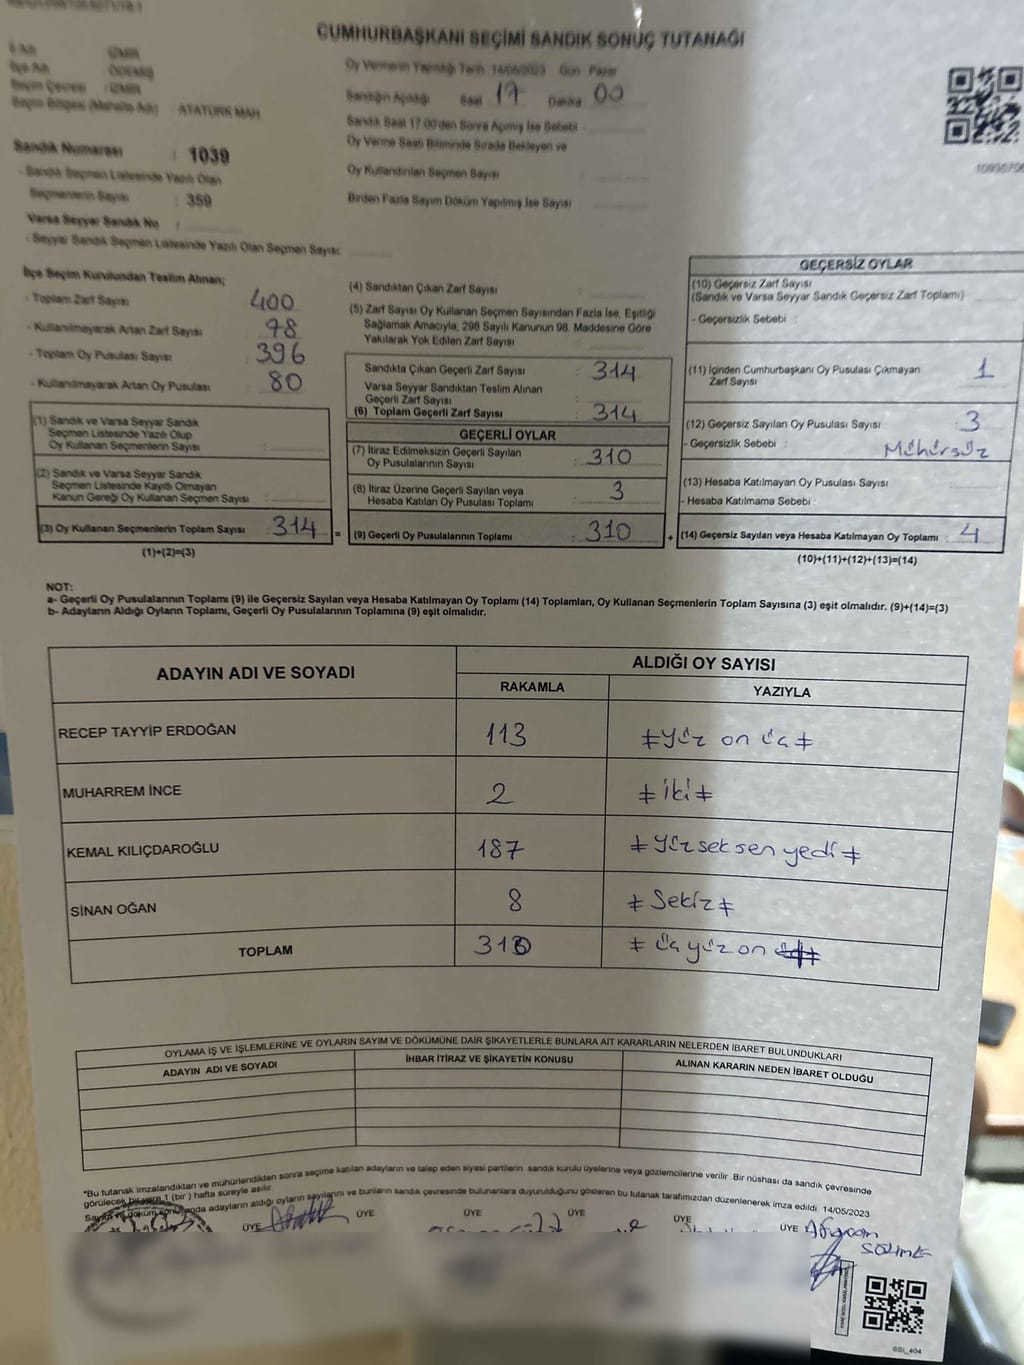 CUMHURBAŞKANI SEÇİMİ SANDIK SONUÇ TUTANAĞI
İl Adı : İZMİR
İlçe Adı : ÖDEMİŞ
Seçim Çevresi : İZMİR
Seçim Bölgesi (Mahalle Adı) : ATATÜRK MAH
Sandık Numarası : 1039
- Sandık Seçmen Listesinde Yazılı Olan
Seçmenlerin Sayısı : 359
Varsa Seyyar Sandık No :
- Seyyar Sandık Seçmen Listesinde Yazılı Olan Seçmen Sayısı:
Oy Vermenin Yapıldığı Tarih :14/05/2023 Gün : Pazar
Sandığın Açıldığı Saat 17 Dakika 00
Sandık Saat 17:00'den Sonra Açımış İse Sebebi :
Oy Verme Saati Bitiminde Sırada Bekleyen ve
Oy Kullandırılan Seçmen Sayısı :
Birden Fazla Sayım Döküm Yapılmış İse Sayısı :
İlçe Seçim Kurulundan Teslim Alınan;
- Toplam Zarf Sayısı : 400
- Kullanılmayarak Artan Zarf Sayısı : 98
- Toplam Oy Pusulası Sayısı : 396
- Kullanılmayarak Artan Oy Pusulası : 80
(1) Sandık ve Varsa Seyyar Sandık
Seçmen Listesinde Yazılı Olup
Oy Kullanan Seçmenlerin Sayısı :
(2) Sandık ve Varsa Seyyar Sandık
Seçmen Listesinde Kayıtlı Olmayan
Kanun Gereği Oy Kullanan Seçmen Sayısı :
(3) Oy Kullanan Seçmenlerin Toplam Sayısı : 314 =
(1)+(2)=(3)
(4) Sandıktan Çıkan Zarf Sayısı :
(5) Zarf Sayısı Oy Kullanan Seçmen Sayısından Fazla İse, Eşitliği
Sağlamak Amacıyla; 298 Sayılı Kanunun 98. Maddesine Göre
Yakılarak Yok Edilen Zarf Sayısı :
Sandıkta Çıkan Geçerli Zarf Sayısı : 314
Varsa Seyyar Sandıktan Teslim Alınan
Geçerli Zarf Sayısı :
(6) Toplam Geçerli Zarf Sayısı : 314
GEÇERLİ OYLAR
(7) İtiraz Edilmeksizin Geçerli Sayılan
Oy Pusulalarının Sayısı : 310
(8) İtiraz Üzerine Geçerli Sayılan veya
Hesaba Katılan Oy Pusulası Toplamı : 3
(9) Geçerli Oy Pusulalarının Toplamı : 310 +
GEÇERSİZ OYLAR
(10) Geçersiz Zarf Sayısı
(Sandık ve Varsa Seyyar Sandık Geçersiz Zarf Toplamı) :
- Geçersizlik Sebebi :
(11) İçinden Cumhurbaşkanı Oy Pusulası Çıkmayan
Zarf Sayısı : 1
(12) Geçersiz Sayılan Oy Pusulası Sayısı : 3
- Geçersizlik Sebebi : Mühürsüz
(13) Hesaba Katılmayan Oy Pusulası Sayısı :
- Hesaba Katılmama Sebebi :
(14) Geçersiz Sayılan veya Hesaba Katılmayan Oy Toplamı : 4
(10)+(11)+(12)+(13)=(14)
NOT:
a- Geçerli Oy Pusulalarının Toplamı (9) ile Geçersiz Sayılan veya Hesaba Katılmayan Oy Toplamı (14) Toplamları, Oy Kullanan Seçmenlerin Toplam Sayısına (3) eşit olmalıdır. (9)+(14)=(3)
b- Adayların Aldığı Oyların Toplamı, Geçerli Oy Pusulalarının Toplamına (9) eşit olmalıdır.
ADAYIN ADI VE SOYADI ALDIĞI OY SAYISI
RAKAMLA YAZIYLA
RECEP TAYYİP ERDOĞAN 113 ≠ Yüz on üç ≠
MUHARREM İNCE 2 ≠ iki ≠
KEMAL KILIÇDAROĞLU 187 ≠ Yüz seksen yedi ≠
SİNAN OĞAN 8 ≠ Sekiz ≠
TOPLAM 310 ≠ Üç yüz on ≠
OYLAMA İŞ VE İŞLEMLERİNE VE OYLARIN SAYIM VE DÖKÜMÜNE DAİR ŞİKAYETLERLE BUNLARA AİT KARARLARIN NELERDEN İBARET BULUNDUKLARI
ADAYIN ADI VE SOYADI İHBAR İTİRAZ VE ŞİKAYETİN KONUSU ALINAN KARARIN NEDEN İBARET OLDUĞU
*Bu tutanak imzalandıktan ve mühürlendikten sonra seçime katılan adayların ve talep eden siyasi partilerin sandık kurulu üyelerine veya gözlemcilerine verilir. Bir nüshası da sandık çevresinde
görülecek bir yere 1 (bir ) hafta süreyle asılır.
adayların aldığı oyların sayılarını ve bunların sandık çevresinde bulunanlara duyurulduğunu gösteren bu tutanak tarafımızdan düzenlenerek imza edildi. 14/05/2023
ÜYE ÜYE ÜYE ÜYE ÜYE ÜYE
SBI_404